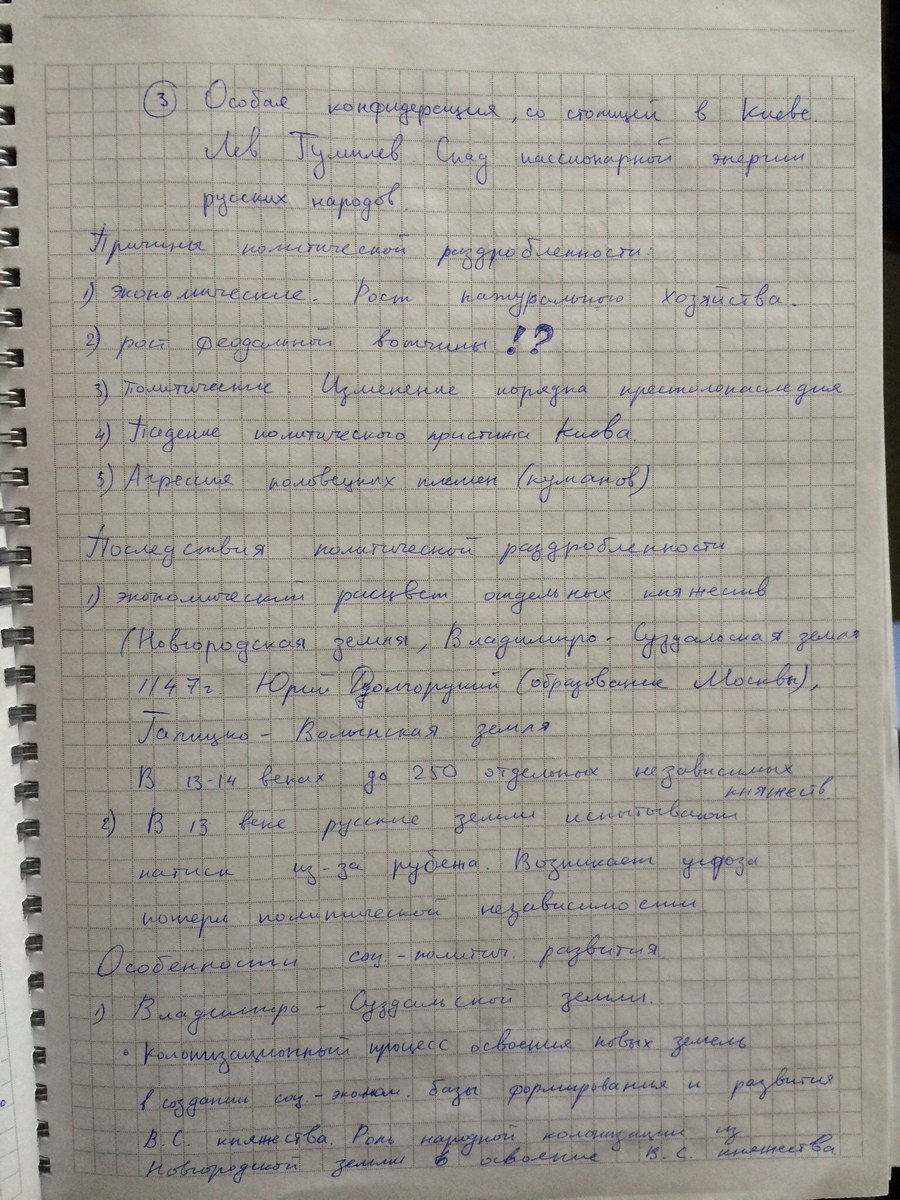 3 Особая конфидерация, со столицей в Киеве.
Лев Гумилев Спад пассионарной энергии
русских народов.
Причины политической раздробленности:
1) экономические. Рост натурального хозяйства.
2) рост феодальной вотчины !?
3) Политические Изменение порядка престолонаследия
4) Падение политического пристижа Киева.
5) Агрессия половецких племен (куманов)
Последствия политической раздробленности
1) экономический расцвет отдельных княжеств
(Новгородская земля, Владимиро-Суздальская земля
1147г. Юрий Долгорукий (образование Москвы),
Галицко-Волынская земля
В 13-14 веках до 250 отдельных независимых
княжеств
2) В 13 веке русские земли испытывают
натиск из-за рубежа. Возникает угроза
потери политической независимости
Особенности соц.-политич. развития
1) Владимиро-Суздальской земли.
• колонизационный процесс освоения новых земель
в создании соц.-эконом. базы формирования и развития
В.С. княжества. Роль народной колонизации из
Новгородской земли в освоение В.С. княжества